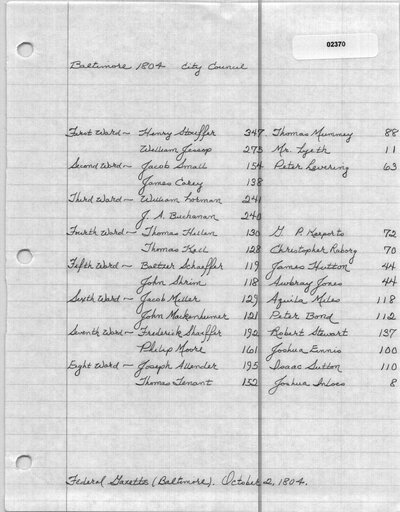 02370
Baltimore 1804 City Council
First Ward~ Henry Stouffer 347 Thomas Mummey 88
William Jessop 273 Mr. Lyeth 11
Second Ward~ Jacob Small 154 Peter Levering 63
James Carey 138
Third Ward~ William Lorman 241
J. A. Buchanan 240
Fourth Ward~ Thomas Hollen 130 G. P. Keeports 72
Thomas Kell 128 Christopher Raborg 70
Fifth Ward~ Baltzer Schaeffer 119 James Hutton 44
John Shrim 118 Aubray Jones 44
Sixth Ward~ Jacob Miller 129 Aquila Miles 118
John Mackenheimer 121 Peter Bond 112
Seventh Ward~ Frederick Shaeffer 192 Robert Stewart 137
Philip Moore 161 Joshua Ennis 100
Eight Ward~ Joseph Allender 195 Isaac Sutton 110
Thomas Tenant 152 Joshua Inloes 8
Federal Gazette (Baltimore). October 2, 1804.